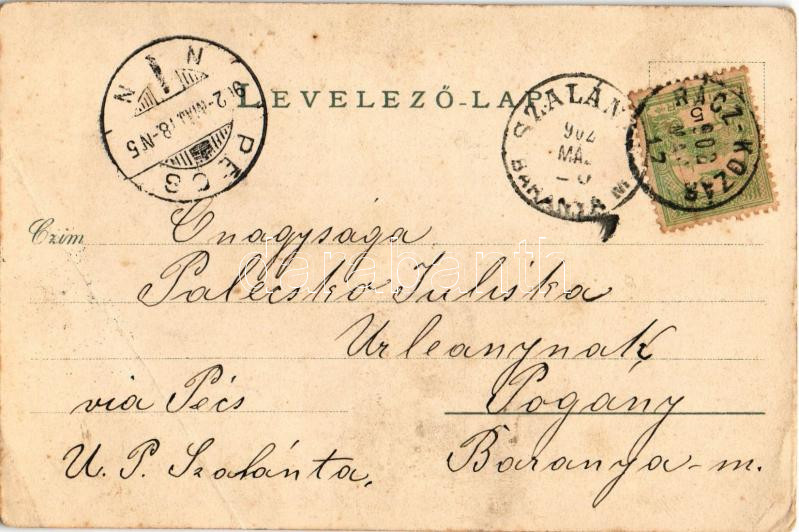 LEVELEZŐ-LAP
PÉCS
902 MÁJ 18 N5
SZALÁN
902
MÁJ
BARANYA M
RÁCZ-KOZÁR
902
MÁJ
17
Czim
Őnagysága
Palecsko Juliska
Urleanynak
via Pécs Pogány
U. P. Szalánta, Baranya-m.
darabanth